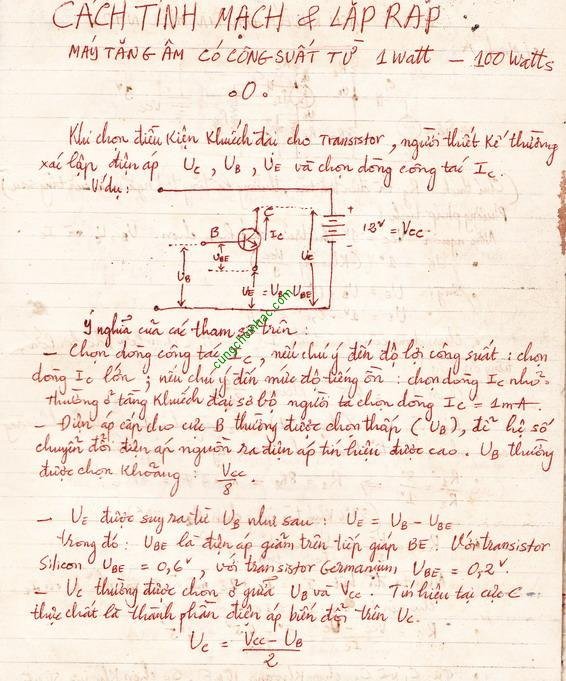 CÁCH TÍNH MẠCH & LẮP RÁP
MÁY TĂNG ÂM CÓ CÔNG SUẤT TỪ 1 Watt — 100 Watts
o0o
Khi chọn điều kiện khuếch đại cho Transistor, người thiết kế thường
xác lập điện áp UC, UB, UE và chọn dòng công tác IC.
Ví dụ:
C
B
IC
K
UBE
UB
UC
UE = UB - UBE
+
-
12V = VCC.
cungchoinhac.com
Ý nghĩa của các tham số trên:
— Chọn dòng công tác IC, nếu chú ý đến độ lợi công suất: chọn
dòng IC lớn; nếu chú ý đến mức độ tiếng ồn: chọn dòng IC nhỏ.
Thường ở tầng khuếch đại sơ bộ người ta chọn dòng IC = 1mA.
— Điện áp cấp cho cực B thường được chọn thấp (UB), để hệ số
chuyển đổi điện áp nguồn ra điện áp tín hiệu được cao. UB thường
được chọn khoảng VCC/8
— UE được suy ra từ UB như sau: UE = UB - UBE
Trong đó: UBE là điện áp giảm trên tiếp giáp BE. Với transistor
Silicon UBE = 0,6V, với transistor Germanium UBE = 0,2V.
— UC thường được chọn ở giữa UB và VCC. Tín hiệu tại cực C
thực chất là thành phần điện áp biến đổi trên UC.
UC = (VCC - UB)/2